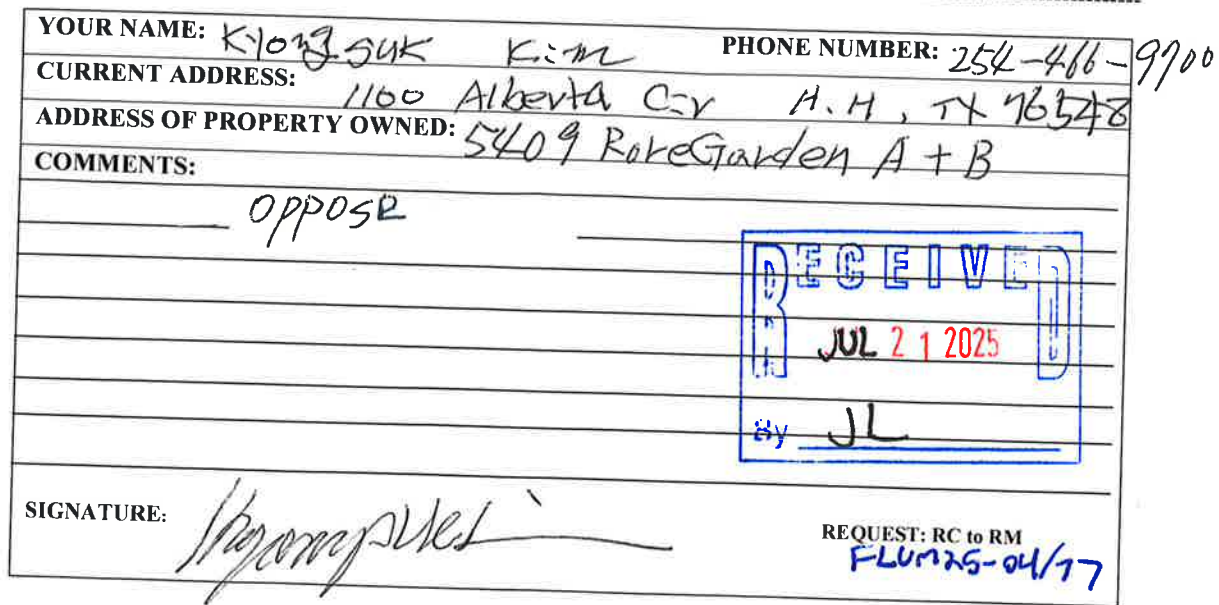 YOUR NAME: Kyong suk Kim PHONE NUMBER: 254-466-9700
CURRENT ADDRESS: 1100 Alberta Cir H.H, TX 76548
ADDRESS OF PROPERTY OWNED: 5409 RoseGarden A + B
COMMENTS:
oppose
RECEIVED
JUL 21 2025
By JL
SIGNATURE:
REQUEST: RC to RM
FLUM25-04/